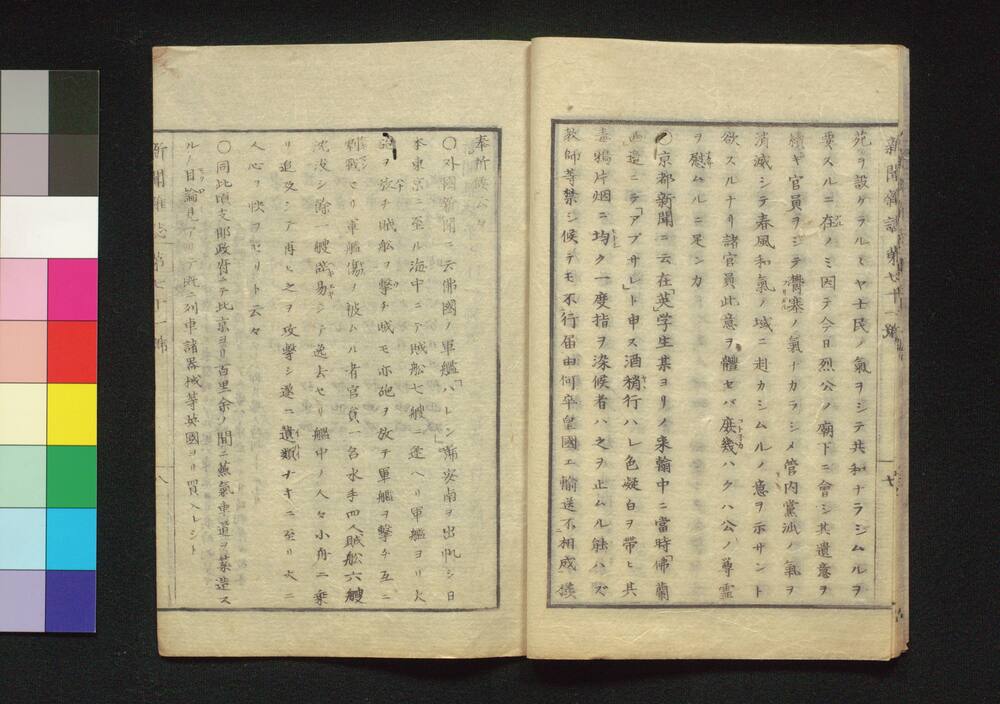 新聞雜誌第七十一號
七
苑ヲ設ケラルヽヤ士民ノ氣ヲシテ共和ナラシムルヲ
要スルニ在ノミ因テ今日烈公ノ廟下ニ會シ其遺意ヲ
續キ官員ヲシテ欝塞ノ氣ナカラシメ管内黨派ノ氣ヲ
消滅シテ春風和氣ノ域ニ赴カシムルノ意ヲ示サント
欲スルナリ諸官員此意ヲ體セバ庶幾ハクハ公ノ尊靈
ヲ慰ムルニ足ンカ
〇京都新聞ニ云在英学生某ヨリノ来翰中ニ當時佛蘭
西邊ニテ「アブサレ」ト申ス酒稍行ハレ色凝白ヲ帶ヒ其
毒鴉片烟ニ均ク一度指ヲ染候者ハ之ヲ止ムル能ハズ
教師等禁シ候テモ不行届由何卒皇國エ輸送不相成様
奉祈候云々
〇外國新聞ニ云佛國ノ軍艦「ハ レン」漸安南ヲ出帆シ日
本東京ニ至ル海中ニテ賊舩七艘ニ逢ヘリ軍艦ヨリ火
砲ヲ放チ賊舩ヲ擊チ賊モ亦砲ヲ放テ軍艦ヲ擊チ互ニ
劇戰セリ軍艦傷ヲ被ムル者官員一名水手四人賊舩六艘
沈没シ餘一艘ハ 易シテ逸去セリ艦中ノ人々小舟ニ乗
リ追及シテ再ヒ之ヲ攻擊シ遂ニ遺類ナキニ至リ大ニ
人心ヲ快ヲセリト云々
〇同比頃支那政府ニテ北京ヨリ百里余ノ間ニ蒸氣車道ヲ築造ス
ルノ目論見アリテ既ニ列車諸器械等英國ヨリ買入レシト
新聞雜誌第七十一號
八